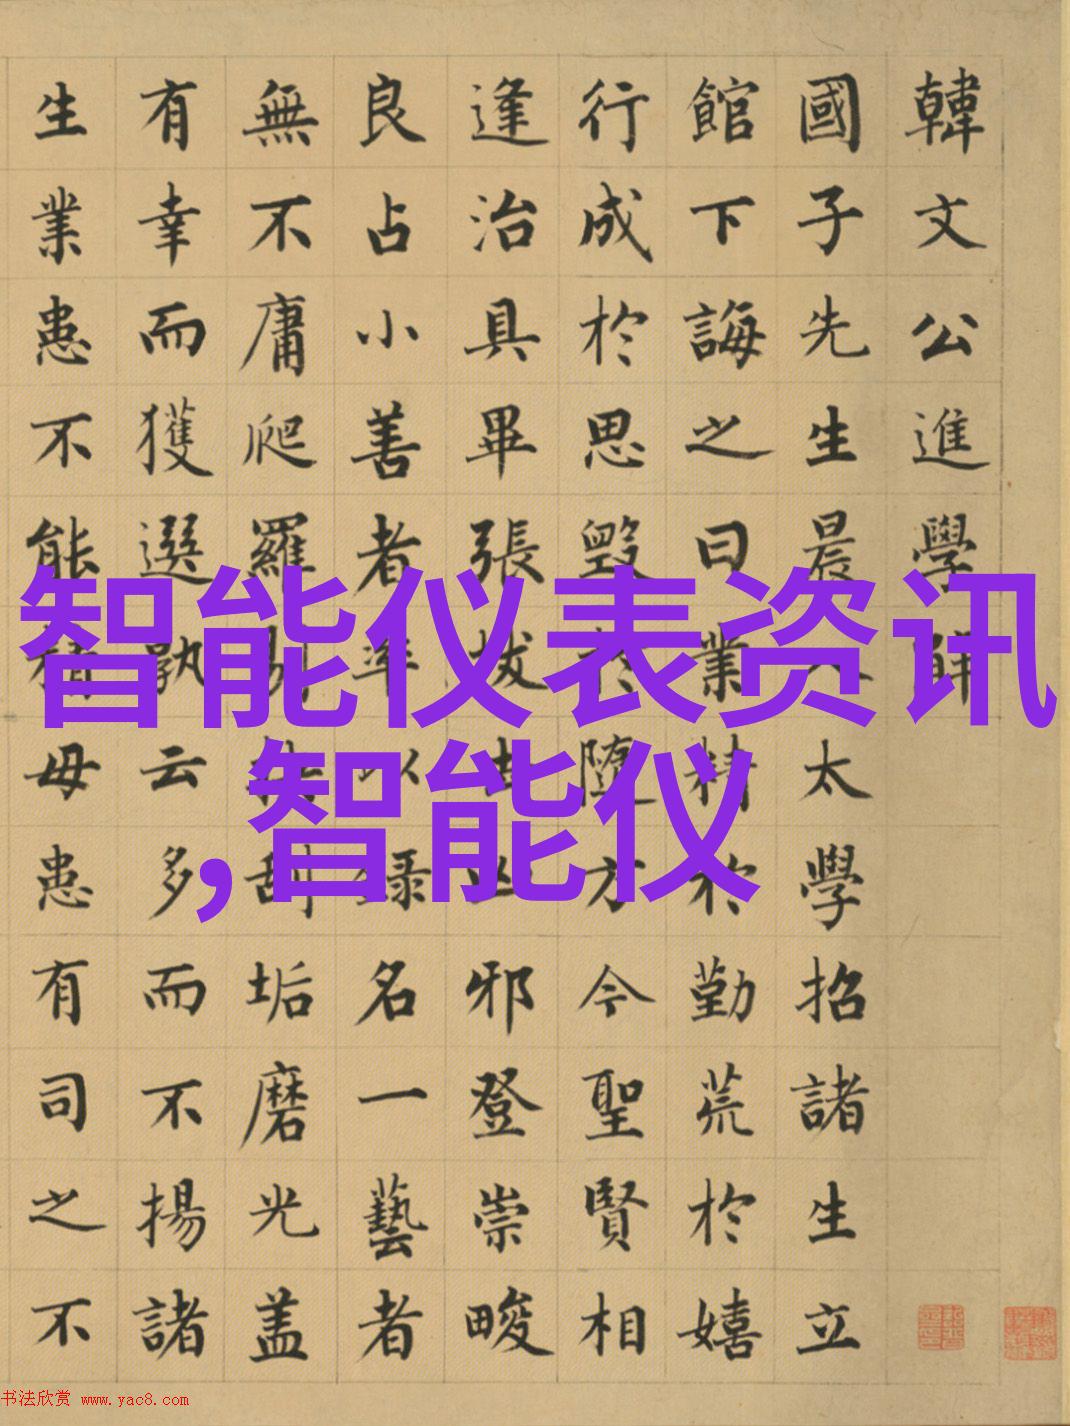 韓文公進學解
國子先生晨太學招諸生立
館下誨之曰業精於勤荒於嬉
行成於思毀於隨方今聖賢相
逢治具畢張拔去凶邪登崇畯
良占小善者率以録名一藝者
無不庸爬羅剔刮垢磨光盖
有幸而獲選孰云多而不揚諸
生業患不能精毋患有司之不
智能仪表资讯
,智能仪
书法欣赏 www.yac8.com